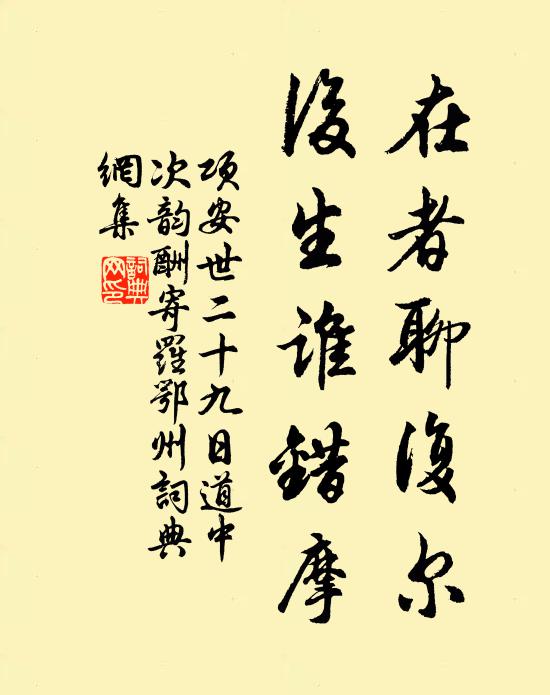 在者聊復尔
後生谁錯摩
项安世二十九日道中
次韵酬寄羅鄂州詞典
網集
詞典
网印